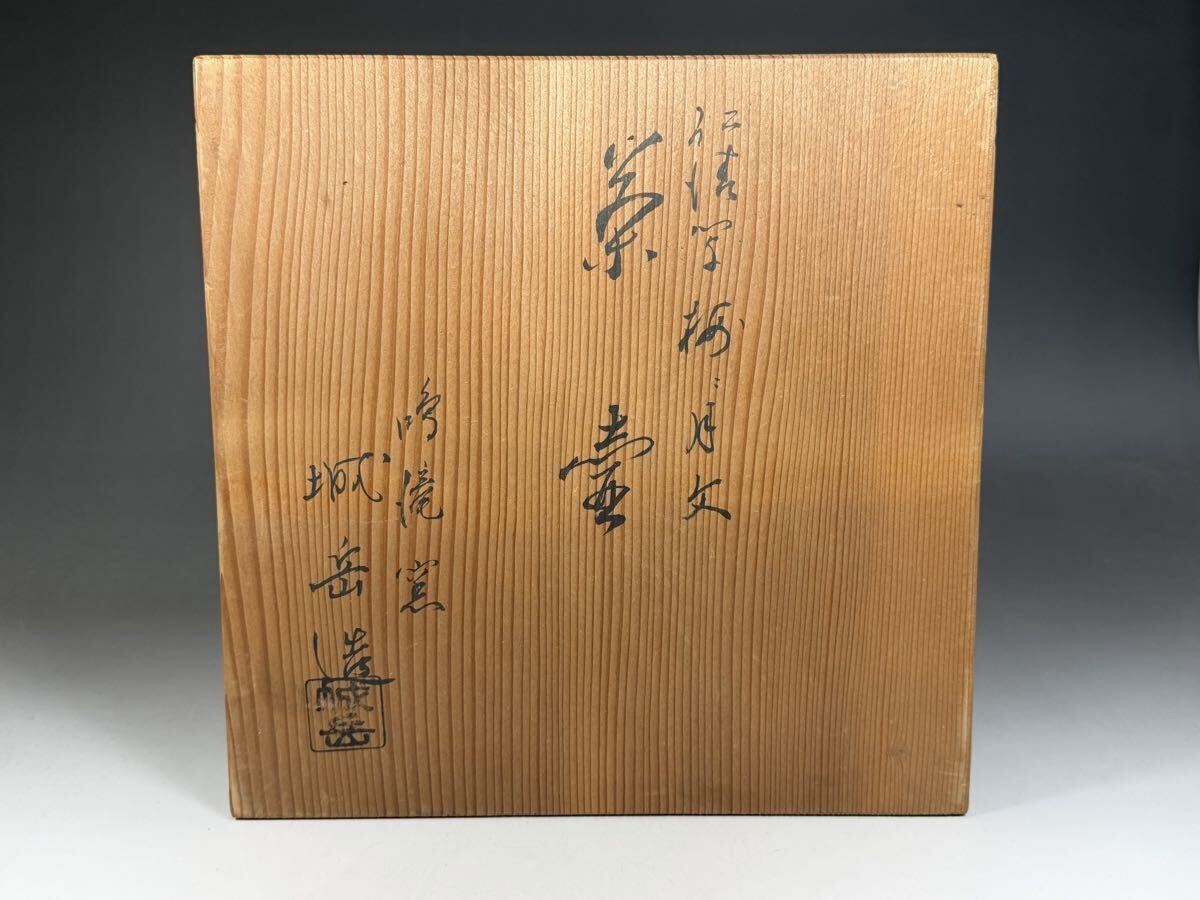 仁清写 梅ニ月文
茶壷
鳴滝窯
城岳造
城岳